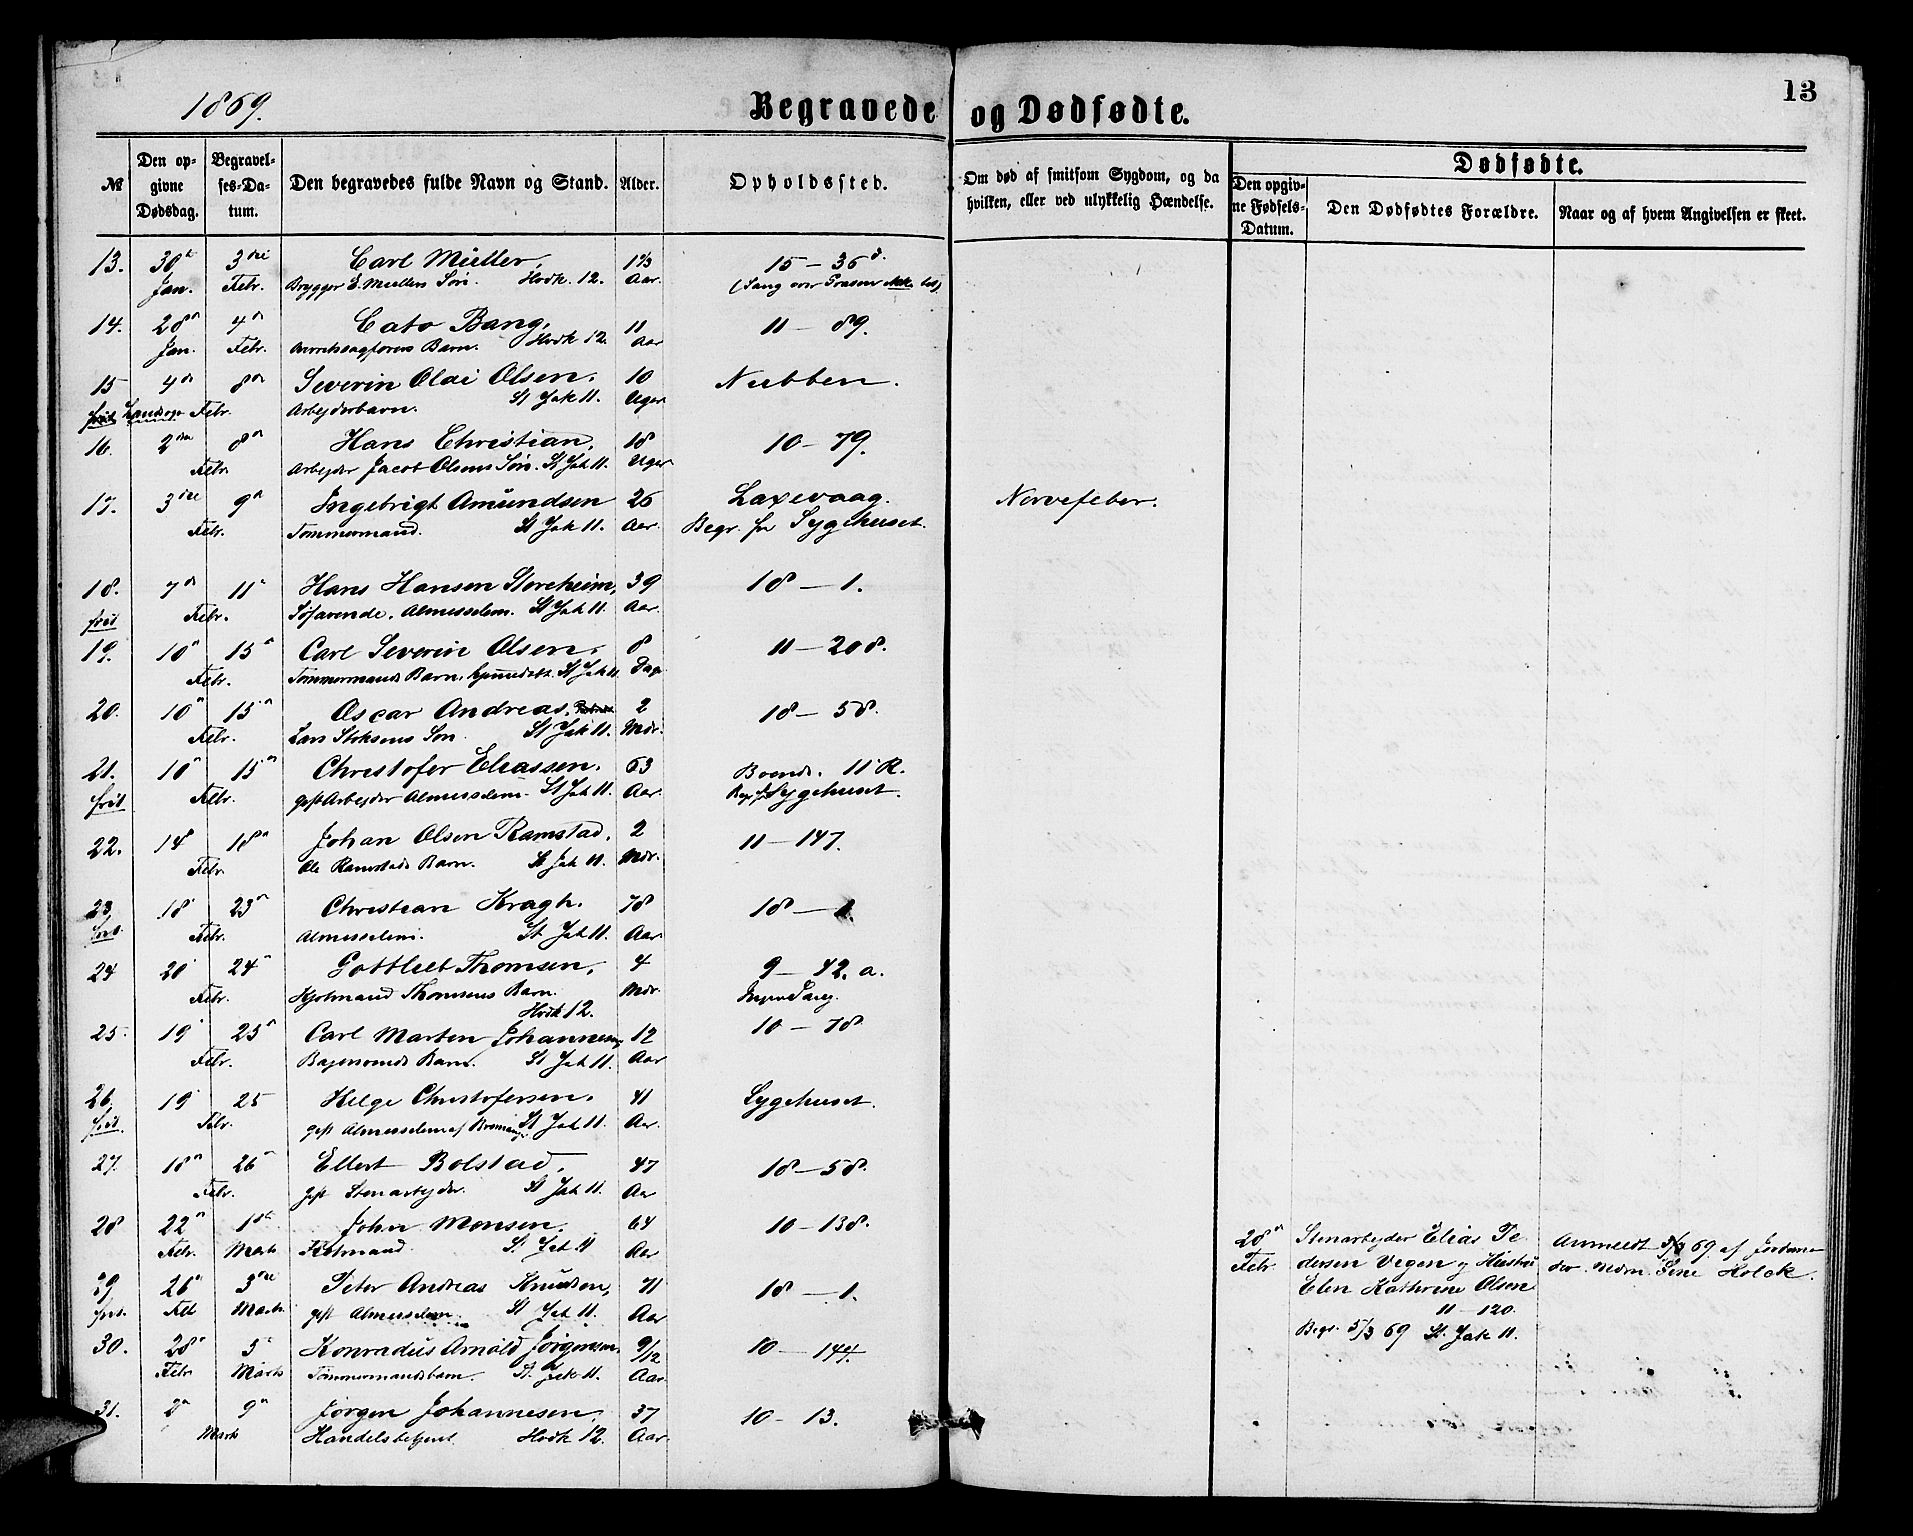 1869.
Begravede og Dødfødte.
13
№
Den opgivne Dødsdag.
Begravelses-Datum.
Den begravedes fulde Navn og Stand.
Alder.
Opholdssted.
Om død af smitsom Sygdom, og da hvilken, eller ved ulykkelig Hændelse.
Dødfødte.
Den opgivne Fødsels-Datum.
Den Dødfødtes Forældre.
Naar og af hvem Angivelsen er skeet.
13. 30te 3die Carl Müller, 1 2/3 15 – 36 d.
Jan. Febr. Brygger E. Müllers Søn. Hvdk. 12. Aar. (Sang over Graven ikke)
14. 28 4 Cato Bang, 11 11 – 89.
Jan. Febr. Barn. Hvdk 12. Aar
15 4de 8de Severin Olai Olsen. 10 Nubben.
frit Febr. Arbejderbarn. St Jak 11. Uger
16. 2den 8 Hans Christian, 18 10 – 79.
Febr. Arbejder Jacob Olsens Søn. St Jak 11. Uger
17. 3die 9 Ingebrigt Amundsen 26 Laxevaag. Nervefeber.
Febr. Tømmermand. St Jak 11. Aar. Begr. fra Sygehuset.
18. 7de 11 Hans Hansen Storeheim, 39 18 – 1.
frit Febr. Søfarende, Almisselem. St Jak 11. Aar.
19. 10 15 Carl Severin Olsen. 8 11 – 208.
Febr. Tømmermands Barn, hjemdøbt. St Jak 11 Dage
20. 10 15 Oscar Andreas. 2 18 – 58.
Febr. Lars Søn. St Jak 11. Mdr.
21. 10 15 Christofer Eliassen. 63 Boende. 11 R.
frit Febr. gift Arbejder Almisselem. St Jak 11. Aar. Begr. fr Sygehuset.
22. 14 18 Johan Olsen Ramstad. 2 11 – 147.
Febr. Ole Ramstads Barn. St Jak 11. Mdr.
23 18 23 Christian Kragh. 78 18 – 1.
frit Febr. Almisselem. St Jak 11. Aar.
24 20 24 Gottlieb Thomsen, 4 9 – 42. a.
Febr. Thomsens Barn. Mdr. Ingen Sang.
Hvdk 12.
25. 19 25 Carl Marten Johannesen, 12 10 – 78
Febr. Bagersvends Barn. St Jak 11. Aar
26. 19 25 Helge Christofersen. 41 Sygehuset.
frit. Febr. gift Almisselem af St Jak 11. Aar.
27. 18 26 Ellert Bolstad, 47 18 – 58.
Febr. gift Stenarbejder. St Jak 11. Aar
28 22 1ste John Monsen. 64 10 – 138.
Febr. Marts St. Jak 11 Aar
29 26 3die Peter Andreas Knudsen, 71 18 – 1.
frit. Feb Marts gift Almisselem. St Jak 11. Aar
30. 28 5 Konradus Arnold Jørgensen. 9/12 10 – 144.
Febr Marts Tømmermandsbarn. St. Jak 11. Aar.
31. 2 9 Jørgen Johannesen, 37 10 – 13.
Marts Handelsbetjent Hvdk 12. Aar.
28 Stenarbejder Elias Pe- Anmeldt 5/3 69 af Jordemo-
Febr dersen Vegen og Hustru der Mdm. Sene Holck.
Elen Kathrine Olsen
11 – 120.
Begr. 5/3 69 St. Jak 11.